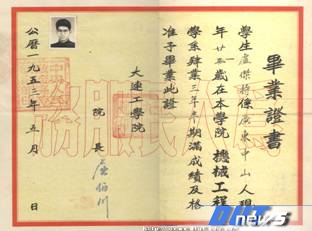 畢業證書
學生盧傑持係廣東中山人現
年廿五歲在本學院機械工程
學系肄業三年半期滿成績及格
准予畢業此證
大連工學院
院長
公曆一九五三年五月 日
為人民服務
news